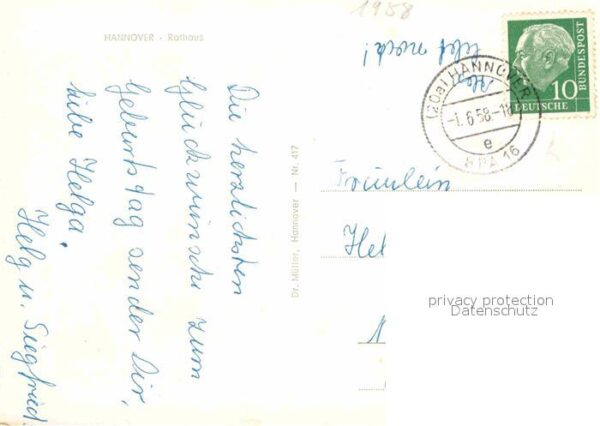 1958
HANNOVER - Rathaus
Die herzlichsten
Glückwünsche zum
Geburtstag sendet Dir,
liebe Helga,
Helg u. Siegfried.
Dr. Müller, Hannover — Nr. 417
lebt noch!
DEUTSCHE
BUNDESPOST
10
(20a) HANNOVER
-1.6.58.-18
e
BPA 16
Fräulein
Hel
privacy protection
Datenschutz